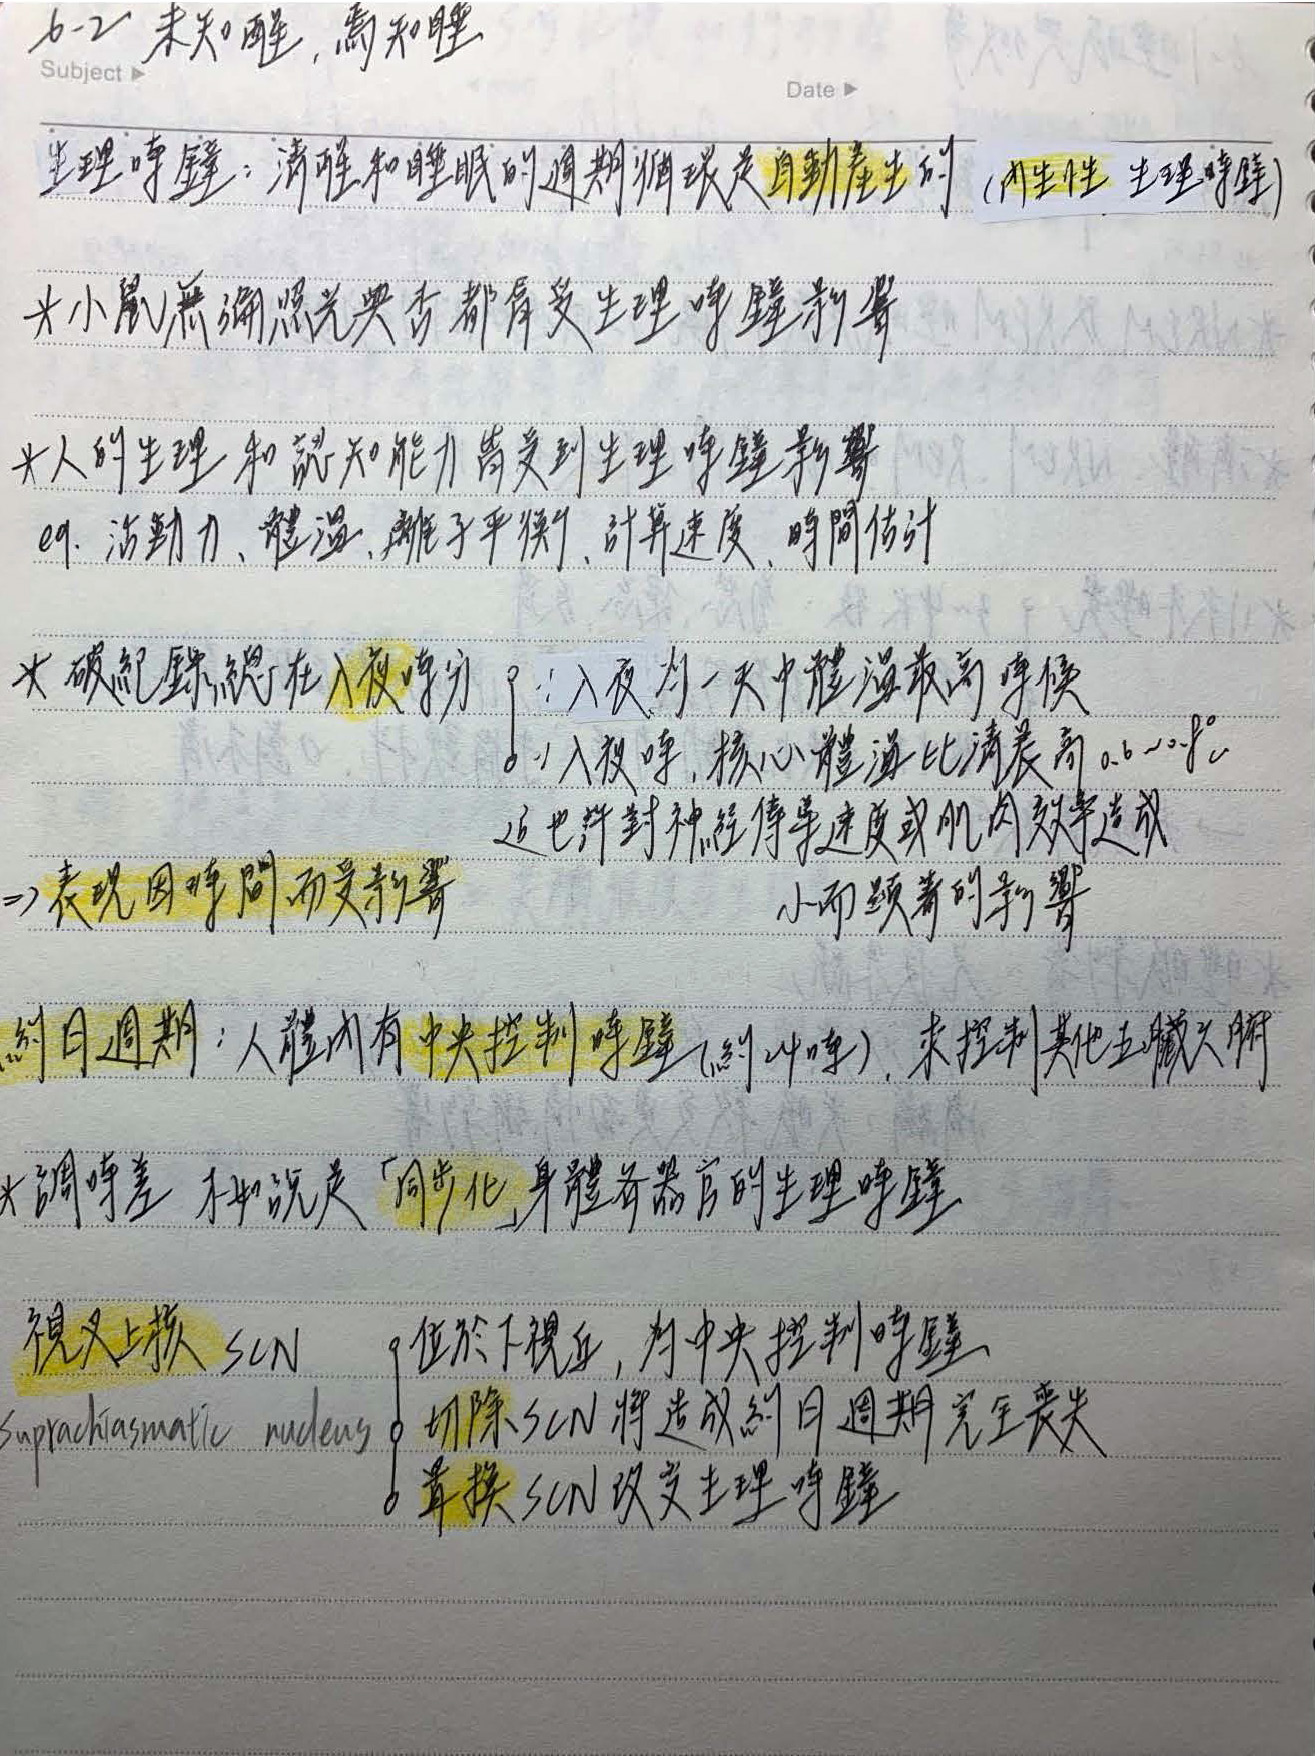 6-2 未知醒，焉知睡
Subject ▶
Date ▶
生理時鐘：清醒和睡眠的週期循環是自動產生的 (內生性 生理時鐘)
*小鼠無論照光與否都會受生理時鐘影響
*人的生理和認知能力皆受到生理時鐘影響
eg. 活動力、體溫、離子平衡、計算速度、時間估計
* 破紀錄總在入夜時分
∵入夜為一天中體溫最高時候
∵入夜時，核心體溫比清晨高 0.6~0.8℃
這也許對神經傳導速度或肌肉效率造成
小而顯著的影響
=> 表現因時間而受影響
約日週期：人體內有中央控制時鐘(約24時)，來控制其他五臟六腑
*調時差 不如說是「同步化」身體各器官的生理時鐘
視叉上核 SCN
suprachiasmatic nucleus
位於下視丘，為中央控制時鐘
切除SCN將造成約日週期完全喪失
置換SCN改變生理時鐘